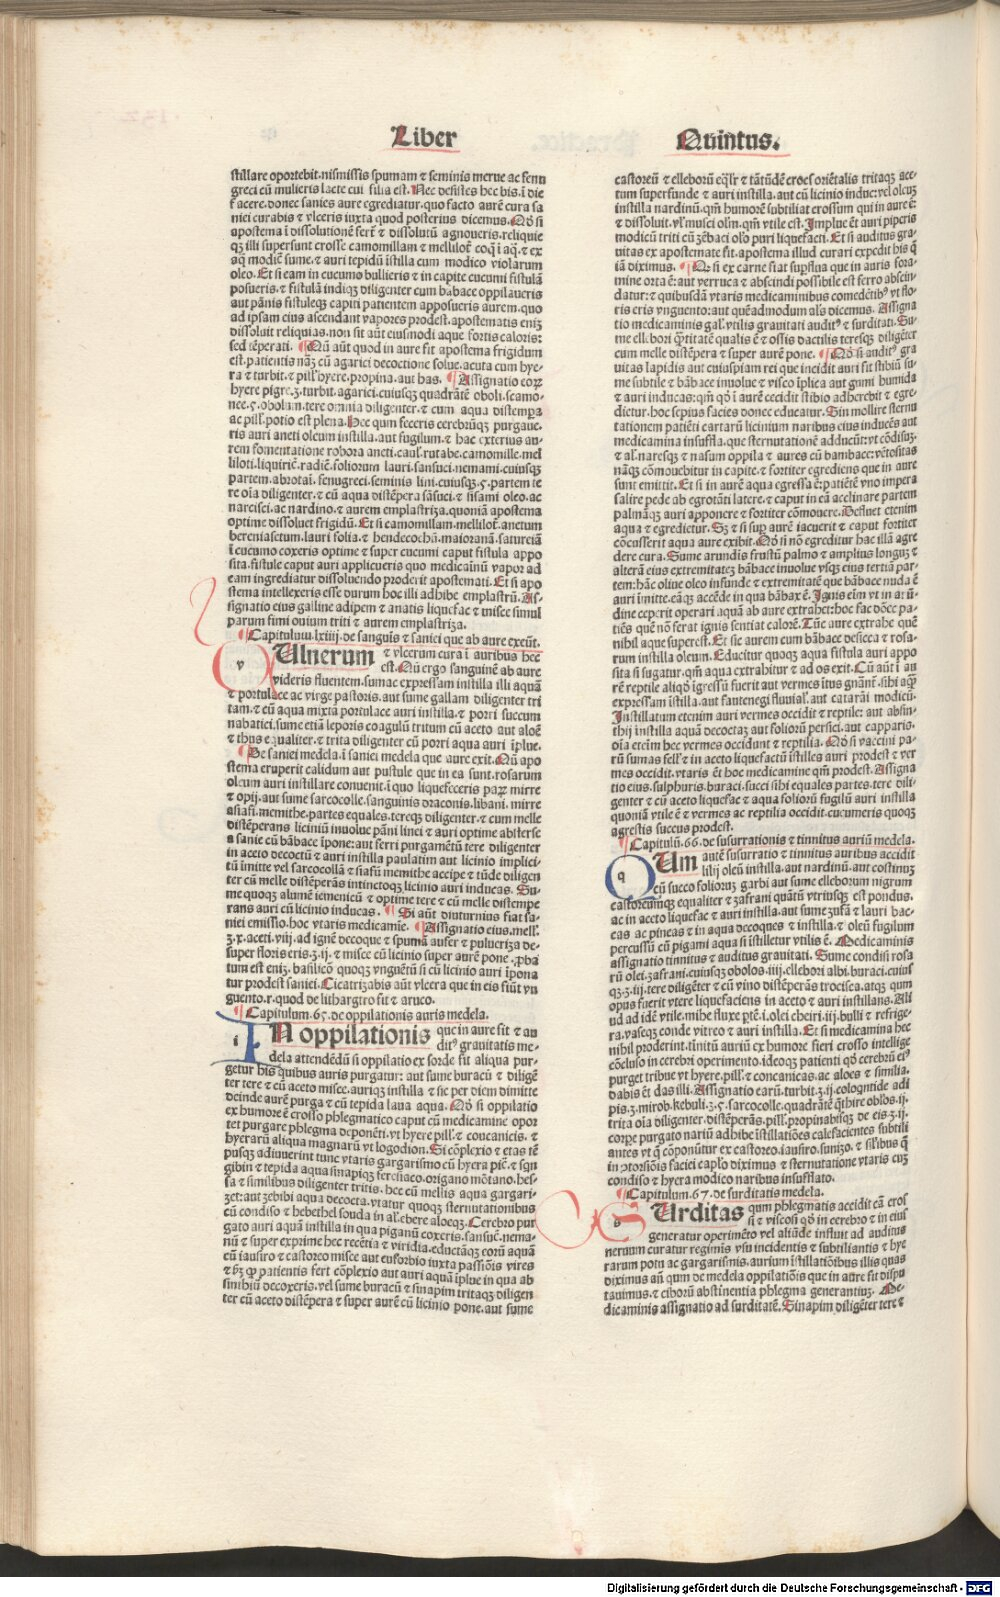 Liber Quintus.
stillare oportebit. nisi missis spumam ⁊ seminis merue ac fenu
greci cū mulieris lacte cui filia est. Nec desistes hec bis. ī die
donec sanies aure egrediatur. quo facto aurē cura sa
niei curabis ⁊ vlceris iuxta quod posterius dicemus. Qō si
apostema ī dissolutionē ⁊ dissolutū agnoueris. reliquie
illi supersunt crosse camomillam ⁊ mellilot. coq̄ ī aq̄. ⁊ ex
aq̄ modicē sume. ⁊ auri tepidū īstilla cum modico violarum
oleo. Et si eam in cucumo bullieris ⁊ in capite cucumi fistulā
posueris. ⁊ fistulā indiq̄ diligenter cum bābace oppilaueris
aut pānis fistuleqꝫ capiti patientem apposueris aurem. quo
ad ipsam eius ascendant vapores prodest. apostematis enīꝫ
dissoluit reliquias. non sit aūt eiusmodi aque fortis caloris:
sed tēperati. Qū aūt quod in aure fit apostema frigidum
est. patientis nāqꝫ cū agarici decoctione solue. acuta cum hye-
ra ⁊ turbit. ⁊ pill̄. hyere. propina. aut has. Assignatio eorꝫ
hyere pigre. ʒ. turbit. agarici. cuiusqꝫ quadrātē oboli. scamo-
nee. obolum. tere omnia diligenter. ⁊ cum aqua distempa
ac pill̄. potio est plena. Hec qum feceris cerebrūqꝫ purgaue-
ris auri aneti oleum instilla. aut fugilum. ⁊ hac exterius au-
rem fomentatione robora aneti. caul̄. rutabe. camomille. mel
liloti. liquiriē. radīē. foliorum lauri. sansuci. nemami. cuiusqꝫ
partem. abrotai. fenugreci. seminis lini. cuiusqꝫ. partem te
re oīa diligenter. ⁊ cū aqua distēpera sāsuci. ⁊ sisami oleo. ac
narcisci. ac nardino. ⁊ aurem emplastriza. quoniā apostema
optime dissoluet frigidū. Et si camomillam. mellilot. anetum
bereniasetum. lauri folia. ⁊ hendecochā. maioranā. satureiā
ī cucumo coxeris optime ⁊ super cucumi caput fistula appo
sita. fistule caput auri applicueris quo medicaminū vapor ad
eam ingrediatur dissoluendo proderit apostemati. Et si apo
stema intellexeris esse durum hoc illi adhibe emplastrū. As-
signatio eius galline adipem ⁊ anatis liquefac ⁊ misce simul
parum fimi ouium triti ⁊ aurem emplastriza.
Capitulum. lxiiij. de sanguis ⁊ saniei que ab aure exeūt.
VUlnerum ⁊ vlcerum cura ī auribus hec
est. Qū ergo sanguinē ab aure
videris fluentem. sumac expressam instilla illi aquā
⁊ portulace ac virge pastoris. aut sume gallam diligenter tri
tam. ⁊ cū aqua mixta portulace auri instilla. ⁊ porri succum
nabatici. sume etiā leporis coagulū tritum cū aceto aut aloē
⁊ thus equaliter. ⁊ trita diligenter cū porri aqua auri īplue.
De saniei medela. ī saniei medela que aure exit. Qū apo
stema eruperit calidum aut pustule que in ea sunt. rosarum
oleum auri instillare conuenit. ī quo liquefeceris parꝫ mirre
⁊ opij. aut sume sarcocolle. sanguinis draconis. libani. mirre
asiafi. memithe. partes equales. tereqꝫ diligenter. ⁊ cum melle
distēperans liciniū inuolue pāni linei ⁊ auri optime absterse
a sanie cū bābace īpone: aut ferri purgamētū tere diligenter
in aceto decoctū ⁊ auri instilla paulatim aut licinio implici-
tū īmitte vel sarcocollā ⁊ siafū memithe accipe ⁊ tūde diligen
ter cū melle distēperās intinctoqꝫ licinio auri inducas. Su-
me quoqꝫ alumē iemenicū ⁊ optime tere ⁊ cū melle distempe
rans auri cū licinio inducas. Si aūt diuturnius fiat sa-
niei emissio. hoc vtaris medicamīe. Assignatio eius. mell̄.
ʒ. x. aceti. viij. ad ignē decoque ⁊ spumā aufer ⁊ pulueriza de-
super floris eris. ʒ. ij. ⁊ misce cū licinio super aurē pone. ꝓba
tum est eniꝫ. basilicō quoqꝫ vnguētū si cū licinio auri īpona
tur prodest saniei. Cicatrizabis aūt vlcera que in eis fiūt vn
guento. r. quod de lithargiro fit ⁊ aruco.
Capitulum. 65. de oppilationis auris medela.
IN oppilationis que in aure fit ⁊ au
ditꝰ grauitatis me-
dela attendēdū si oppilatio ex sorde fit aliqua pur-
getur his quibus auris purgatur: aut sume buracū ⁊ diligē
ter tere ⁊ cū aceto misce. auriqꝫ instilla ⁊ sic per diem dimitte
deinde aurē purga ⁊ cū tepida laua aqua. Qō si oppilatio
ex humore ē crosso phlegmatico caput cū medicamine opor
tet purgare phlegma deponēti. vt hyere pill̄. ⁊ coucanicis. ⁊
hyerarū aliqua magnarū vt logodion. Si cōplexio ⁊ etas tē
pusqꝫ adiuuerint tunc vtaris gargarismo cū hyera pic̄. ⁊ sqn
gibin ⁊ tepida aqua sinapiqꝫ fersiaco. origano mōtano. hes-
sa ⁊ similibus diligenter tritis. hec cū mellis aqua gargari-
zet: aut zebibi aqua decocta. vtatur quoqꝫ sternutationibus
cū condiso ⁊ hebethel souda in al. ebere aloeqꝫ. Cerebro pur
gato auri aquā instilla in qua piganū coxeris. sansuc̄. nema-
nū ⁊ super exprime hec recētia ⁊ viridia. eductāqꝫ eorū aquā
cū iausiro ⁊ castoreo misce aut euforbio iuxta passiōis vires
patientis fert cōplexio aut auri aquā īplue in qua ab
sinthiū decoxeris. vel sume buracū ⁊ sinapim tritaqꝫ diligen
ter cū aceto distēpera ⁊ super aurē cū licinio pone. aut sume
castoreū ⁊ elleborū eql̄r ⁊ tātūdē croci oriētalis tritaqꝫ ace-
tum superfunde ⁊ auri instilla. aut cū licinio induc: vel oleuꝫ
instilla nardinū. qm̄ humorē subtiliat crossum qui in aure ē:
⁊ dissoluit. vl̄ musci olīn. qm̄ vtile est. Implue ēt auri piperis
modicū triti cū zēbaci oleo puri liquefacti. Et si auditus gra
uitas ex apostemate fit. apostema illud curari expedit his q̄
iā diximus. Qr si ex carne fiat supflua que in auris fora-
mine orta ē: aut verruca ⁊ abscindi possibile est ferro abscin-
datur: ⁊ quibusdā vtaris medicaminibus comedētibꝰ vt flo-
ris eris vnguento: aut quēadmodum alꝭ dicemus. Assigna
tio medicaminis gal. vtilis grauitati auditꝰ ⁊ surditati. Su-
me ellebori q̄titatē qualis ē ⁊ ossis dactilis teresqꝫ diligēter
cum melle distēpera ⁊ super aurē pone. Qō si auditꝰ gra
uitas lapidis aut cuiuspiam rei que incidit auri fit stibiū su-
me subtile ⁊ bābace inuolue ⁊ visco īplica aut gumi humida
⁊ auri inducas: qm̄ qō ī aurē cecidit stibio adherebit ⁊ egre-
dietur. hoc sepius facies donec educatur. Sin mollire sternu
tationem patiēti cartarū licinium naribus eius inducēs aut
medicamina insuffla. que sternutationē adducūt: vt cōdisuꝫ.
⁊ al. naresqꝫ ⁊ nasum oppila ⁊ aures cū bambace: vētositas
nāqꝫ cōmouebitur in capite. ⁊ fortiter egrediens que in aure
sunt emittit. Et si in aurē aqua egressa ē: patiētē vno impera
salire pede ab egrotāti latere. ⁊ caput in eā acclinare partem
palmāqꝫ auri apponere ⁊ fortiter cōmouere. Defluet etenim
aqua ⁊ egredietur. Sꝫ ⁊ si suꝑ aurē iacuerit ⁊ caput fortiter
cōcusserit aqua aure exibit. Qō si nō egreditur hac illā agre
dere cura. Sume arundis frustū palmo ⁊ amplius longuꝫ ⁊
alterā eius extremitatēꝫ bābace inuolue vsqꝫ eius tertiā par-
tem: hāc oline oleo infunde ⁊ extremitatē que bābace nuda ē
auri īmitte. eāqꝫ accēde in qua bābax ē. Ignis eīm vt in arū-
dine ceperit operari aquā ab aure extrahet: hoc fac donec pa-
tiēs quē nō ferat ignis sentiat calorē. Tūc aure extrahe quē
nihil aque superest. Et sic aurem cum bābace desicca ⁊ rosa-
rum instilla oleum. Educitur quoqꝫ aqua fistula auri appo
sita si sugatur. qm̄ aqua extrahitur ⁊ ad os exit. Cū aūt ī au
rē reptile aliqō īgressū fuerit aut vermes ītus gnānt. sibi aq̄ꝫ
expressam īstilla. aut fantenegi fluuial̄. aut cataraī modicū.
Instillatum etenim auri vermes occidit ⁊ reptile: aut absin-
thij instilla aquā decoctaꝫ aut foliorū persici. aut capparis.
oīa etem̄ hec vermes occidunt ⁊ reptilia. Qō si vaccini pa-
rū sumas fell' ⁊ in aceto liquefactū īstilles auri prodest ⁊ ver
mes occidit. vtaris ēt hoc medicamine qm̄ prodest. Assigna
tio eius. sulphuris. buraci. succi sihi equales partes. tere dili-
genter ⁊ cū aceto liquefac ⁊ aqua foliorū fugilū auri instilla
quoniā vtile ē ⁊ vermes ac reptilia occidit. cucumeris quoqꝫ
agrestis succus prodest.
Capitulū. 66. de susurrationis ⁊ tinnitus auriū medela.
QUm autē susurratio ⁊ tinnitus auribus accidit
lilij oleū instilla. aut nardinū. aut costinuꝫ
cū succo foliorum garbi aut sume elleborum nigrum
castoreumqꝫ equaliter ⁊ zafrani quātū vtriusqꝫ est pondus.
ac in aceto liquefac ⁊ auri instilla. aut sume zufā ⁊ lauri bac-
cas ac pineas ⁊ in aqua decoques ⁊ instilla. ⁊ oleū fugilum
percussū cū pigami aqua si īstilletur vtilis ē. Medicaminis
assignatio tinnitus ⁊ auditus grauitati. Sume condisi rosa
rū olei. zafrani. cuiusqꝫ obolos. iiij. ellebori albi. buraci. cuius
qꝫ. ʒ. iij. tere diligēter ⁊ cū vino distēperās trocisca. atqꝫ qum
opus fuerit vtere liquefaciens in aceto ⁊ auri instillans. Ali
ud ad idē vtile. mihe fluxe ptē. i. olei cheiri. iij. bulli ⁊ refrige
ra. vaseqꝫ conde vitreo ⁊ auri instilla. Et si medicamina hec
nihil proderint. tinitū auriū ex humore fieri crosso intellige
cōcluso in cerebri operimento. ideoqꝫ patienti qō cerebrū eiꝰ
purget tribue vt hyere. pill̄. ⁊ concanicas. ac aloes ⁊ similia.
dabis ēt das illi. Assignatio earū. turbit. ʒ. ij. coloqntide adi
pis. ʒ. mirob. kebuli. ʒ. s. sarcocolle. quadrātē q̄thire obolos. ij.
trita oīa diligenter. distēperās. pill̄. propinabisqꝫ de eis. ʒ. ij.
corpe purgato nariū adhibe īstillatiōes calefacientes subtili
antes vt q̄ cōponūtur ex castoreo. iausiro. sunizo. ⁊ silibus q̄
in ꝓtorsiōis faciei caplo diximus ⁊ sternutatione vtaris cuꝫ
condiso ⁊ hyera modico naribus insufflato.
Capitulum. 67. de surditatis medela.
SUrditas qum phlegmatis accidit cā cros
si ⁊ viscosi qō in cerebro ⁊ in eius
generatur operimēto vel aliūde influit ad auditus
neruum curatur regimīs vsu incidentis ⁊ subtiliantis ⁊ hye
rarum potu ac gargarismis. aurium īstillatiōibus illis quas
diximus añ qum de medela oppilatiōis que in aure fit dispu
tauimus. ⁊ ciborū abstinentia phlegma generantiuꝫ. Me-
dicaminis assignatio ad surditatē. Sinapim diligēter tere ⁊
Digitalisierung gefördert durch die Deutsche Forschungsgemeinschaft - DFG